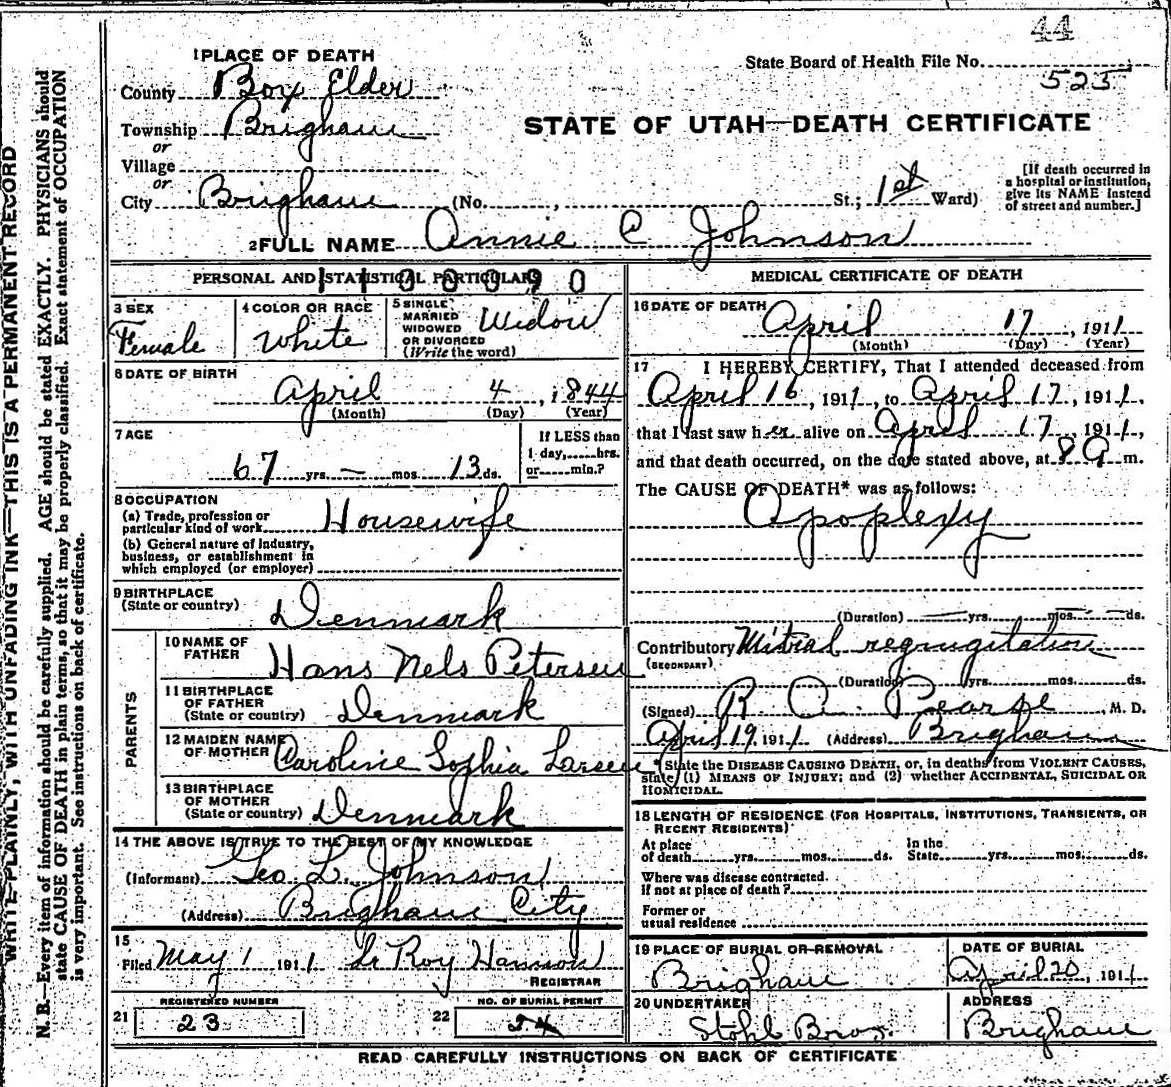 44
1 PLACE OF DEATH
State Board of Health File No. 523
County Box Elder
Township Brigham
or
Village
or
City Brigham (No. , St.; 1st Ward)
STATE OF UTAH—DEATH CERTIFICATE
[If death occurred in
a hospital or institution,
give its NAME instead
of street and number.]
2 FULL NAME Annie C Johnson
PERSONAL AND STATISTICAL PARTICULARS
3 SEX
Female
4 COLOR OR RACE
White
5 SINGLE
MARRIED
WIDOWED
OR DIVORCED
(Write the word)
Widow
6 DATE OF BIRTH
April 4, 1844
(Month) (Day) (Year)
7 AGE
67 yrs. — mos. 13 ds.
If LESS than
1 day, hrs.
or min.?
8 OCCUPATION
(a) Trade, profession or
particular kind of work Housewife
(b) General nature of industry,
business, or establishment in
which employed (or employer)
9 BIRTHPLACE
(State or country) Denmark
PARENTS
10 NAME OF
FATHER Hans Nels Petersen
11 BIRTHPLACE
OF FATHER
(State or country) Denmark
12 MAIDEN NAME
OF MOTHER Caroline Sophia Larsen
13 BIRTHPLACE
OF MOTHER
(State or country) Denmark
14 THE ABOVE IS TRUE TO THE BEST OF MY KNOWLEDGE
(Informant) Geo. L. Johnson
(Address) Brigham City
15
Filed May 1 1911 Le Roy Hanson
REGISTRAR
REGISTERED NUMBER
21 23
NO. OF BURIAL PERMIT
22 24
MEDICAL CERTIFICATE OF DEATH
16 DATE OF DEATH April 17, 1911
(Month) (Day) (Year)
17 I HEREBY CERTIFY, That I attended deceased from
April 16, 1911, to April 17, 1911,
that I last saw her alive on April 17, 1911,
and that death occurred, on the date stated above, at 8 A m.
The CAUSE OF DEATH* was as follows:
Apoplexy
(Duration) — yrs. — mos. — ds.
Contributory Mitral regrugitation
(SECONDARY)
(Duration) yrs. mos. ds.
(Signed) R. A. Pearse, M. D.
April 19, 1911 (Address) Brigham
*State the DISEASE CAUSING DEATH, or, in deaths from VIOLENT CAUSES,
state (1) MEANS OF INJURY; and (2) whether ACCIDENTAL, SUICIDAL OR
HOMICIDAL.
18 LENGTH OF RESIDENCE (FOR HOSPITALS, INSTITUTIONS, TRANSIENTS, OR
RECENT RESIDENTS)
At place
of death yrs. mos. ds.
In the
State yrs. mos. ds.
Where was disease contracted,
if not at place of death?
Former or
usual residence
19 PLACE OF BURIAL OR REMOVAL
Brigham
DATE OF BURIAL
April 20, 1911
20 UNDERTAKER
Stohl Bros.
ADDRESS
Brigham
READ CAREFULLY INSTRUCTIONS ON BACK OF CERTIFICATE
WRITE PLAINLY, WITH UNFADING INK—THIS IS A PERMANENT RECORD
N. B.—Every item of information should be carefully supplied. AGE should be stated EXACTLY. PHYSICIANS should
state CAUSE OF DEATH in plain terms, so that it may be properly classified. Exact statement of OCCUPATION
is very important. See instructions on back of certificate.